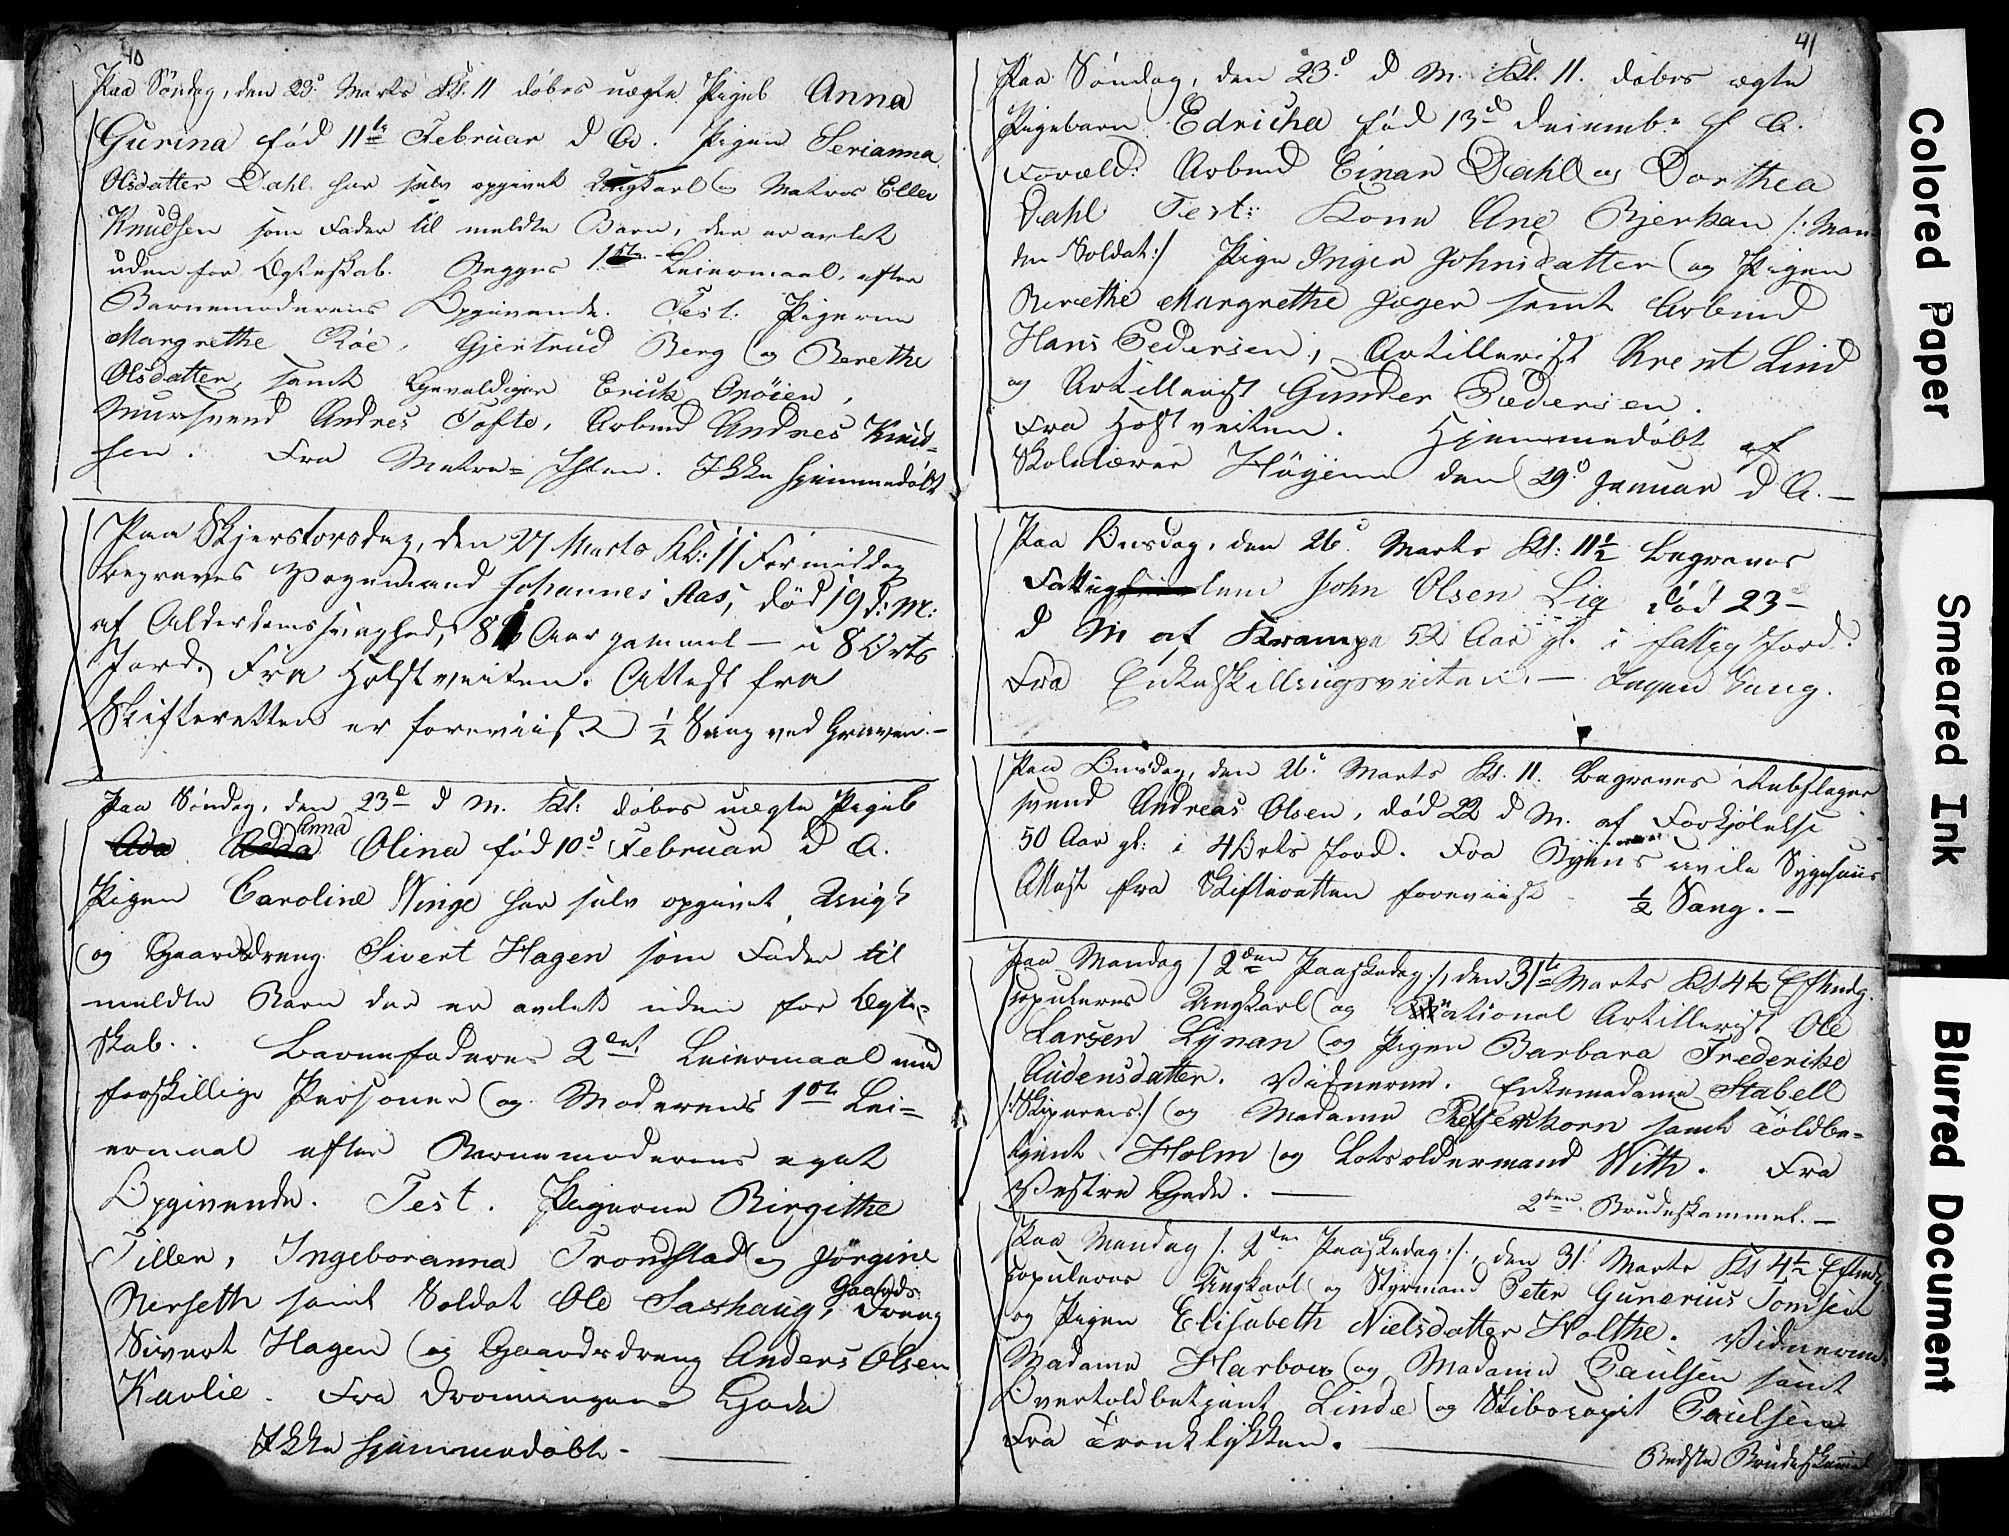 40
Paa Söndag, den 23d Marts Kl. 11 döbes uægte Pigeb Anna
Gurina föd 11te Februar d A. Pigen Serianna
Olsdatter Dahl har selv opgivet Ungkarl og Matros Eller
Knudsen som Fader til meldte Barn, der er avlet
uden for Ægteskab. Begges 1ste Leiermaal, efter
Barnemoderens Opgivende. Test. Pigerne
Margrethe Röe, Gjertrud Berg og Berethe
Olsdatter, samt Gevaldiger Erick Oröien,
Mursvend Andres Tofte, Arbmd Andres Knud-
sen. Fra Ikke hjemmedöbt
Paa Skjerstorsdag, den 27 Marts Kl: 11 Formiddag
begraves Vognmand Johannes Aas, död 19 d: M:
af Alderdomssvaghed, Aar gammel — i 8 Orts
Jord. Fra Holstveiten. Attest fra
Skifteretten er foreviist ½ Sang ved Graven. —
Paa Söndag, den 23d d M. Kl: döbes uægte Pigeb
Ada Adda Anna Olina föd 10d Februar d A.
Pigen Caroline Winge har selv opgivet Ungk
og Gaardsdreng Sivert Hagen som Fader til
meldte Barn der er avlet uden for Ægte-
skab. Barnefaderes 2det Leiermaal med
forskillige Personer og Moderens 1ste Lei-
ermaal efter Barnemoderens eget
Opgivende. Test. Pigerne Birgithe
Tiller, Ingeboranna Trondstad og Jörgine
Nerseth samt Soldat Ole Saxhaug, Gaards Dreng
Sivert Hagen og Gaardsdreng Anders Olsen
Kavlie. Fra Dronningens Gade
Ikke hjemmedöbt. —
41
Paa Söndag, den 23d d M. Kl. 11. döbes ægte
Pigebarn Edricha föd 13d Decembr f A.
Foræld: Arbmd Einar Dahl og Dorthea
Dahl Test: Kone Ane Bjerkan /: Man-
den Soldat:/ Pige Inger Johnsdatter og Pigen
Berethe Margrethe Jæger samt Arbmd
Hans Pedersen, Artillerist Arent Lind
og Artillerist Gunder Pedersen.
Fra Holstveiten. Hjemmedöbt af
Skolelærer Höyem den 29d Januar d A. —
Paa Onsdag, den 26d Marts Kl: 11½ Begraves
Fattiglem John Olsen Lia död 23d
d M af Krampe 52 Aar gl. i fattig Jord.
Fra Enkeskillingsveiten. — Ingen Sang.
Paa Onsdag, den 26d Marts Kl. 11. Begraves Rebslager
svend Andreas Olsen, död 22 d M. af Forkjölelse
50 Aar gl: i 4 Orts Jord. Fra Byens civile Sygehuus
Attest fra Skifteretten foreviist ½ Sang. —
Paa Mandag /: 2den Paaskedag:/, den 31te Marts Kl. 4½ Eftmdg.
copuleres Ungkarl og National Artillerist Ole
Larsen Lynan og Pigen Barbara Frederike
Audensdatter. Vidnerne. Enkemadame Stabell
/:Skiperens:/ og Madame Refsenkorn samt Toldbe-
tjent Holm og Lotsoldermand With. Fra
Vestre Gade. — 2den Brudeskammel. —
Paa Mandag /: 2den Paaskedag:/, den 31 Marts Kl 4½ Eftmdg
copuleres Ungkarl og Styrmand Peter Gunerius Tomsen
og Pigen Elisabeth Nielsdatter Holthe. Vidnerne:
Madame Harboe og Madame Paulsen samt
Overtoldbetjent Linde og Skibscapit Paulsen
Fra Tronklykken. —
Bedste Brudeskammel
Colored Paper
Smeared Ink
Blurred Document